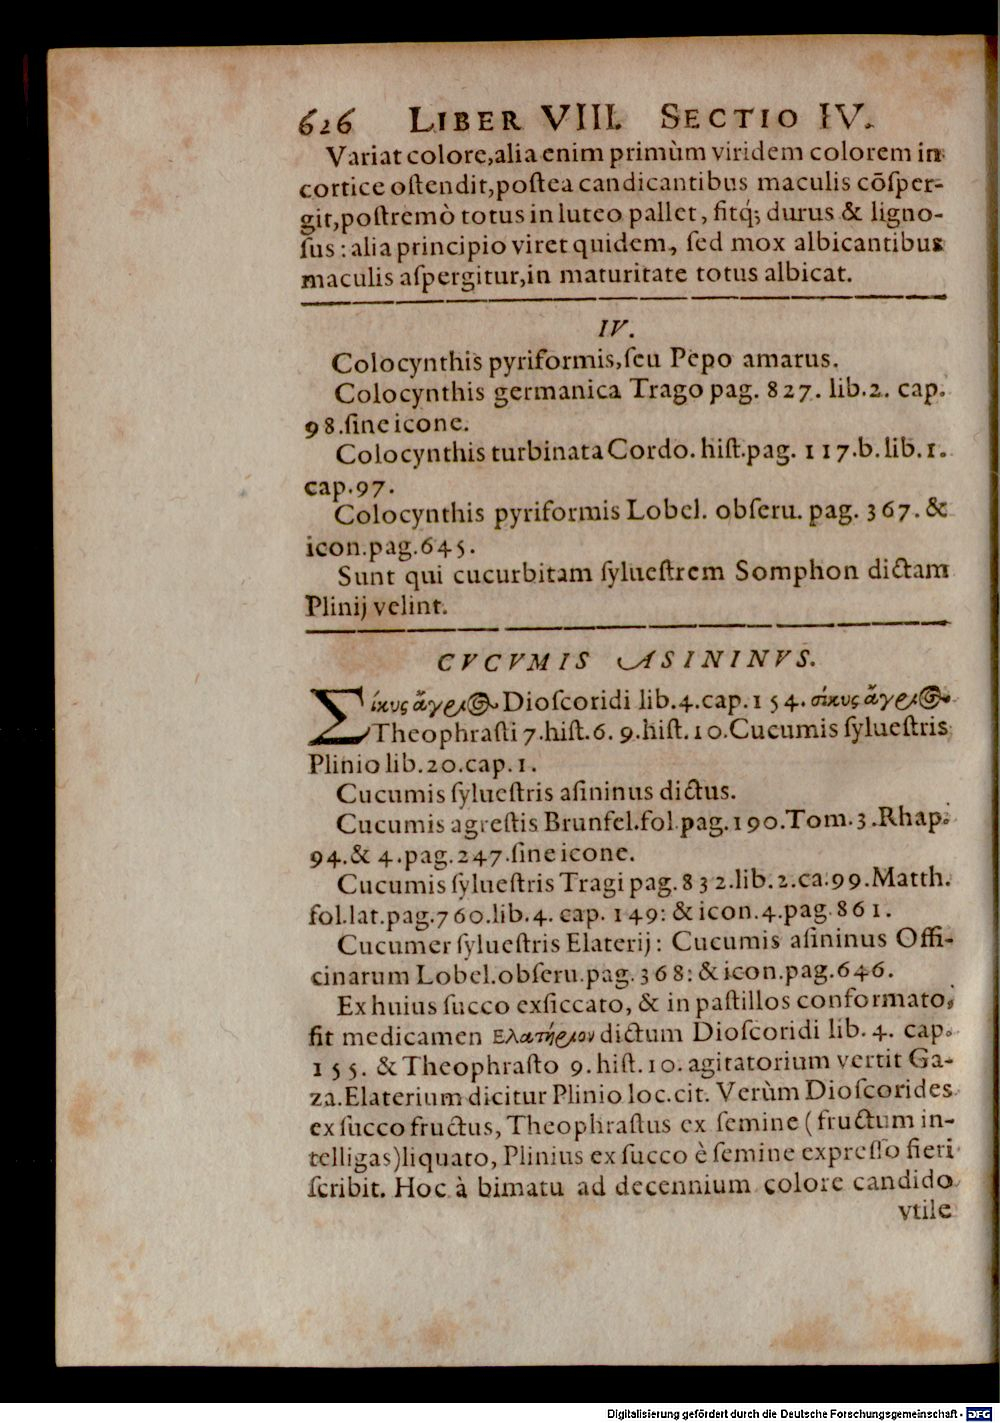 626 LIBER VIII. SECTIO IV.
Variat colore,alia enim primùm viridem colorem in
cortice oſtendit,poſtea candicantibus maculis cōſper-
git,poſtremò totus in luteo pallet, fitq́; durus & ligno-
ſus: alia principio viret quidem, ſed mox albicantibus
maculis aſpergitur,in maturitate totus albicat.
IV.
Colocynthis pyriformis,ſeu Pepo amarus.
Colocynthis germanica Trago pag. 827. lib.2. cap.
98.ſine icone.
Colocynthis turbinata Cordo. hiſt.pag. 117.b.lib.1.
cap.97.
Colocynthis pyriformis Lobel. obſeru. pag. 367. &
icon.pag.645.
Sunt qui cucurbitam ſylueſtrem Somphon dictam
Plinij velint.
CVCVMIS ASININVS.
Σίκυς ἄγριος Dioſcoridi lib.4.cap.154. σίκυς ἄγριος
Theophraſti 7.hiſt.6. 9.hiſt.10.Cucumis ſylueſtris
Plinio lib.20.cap.1.
Cucumis ſylueſtris aſininus dictus.
Cucumis agreſtis Brunfel.fol.pag.190.Tom.3.Rhap.
94.& 4.pag.247.ſine icone.
Cucumis ſylueſtris Tragi pag.832.lib.2.ca.99.Matth.
fol.lat.pag.760.lib.4. cap. 149: & icon.4.pag.861.
Cucumer ſylueſtris Elaterij: Cucumis aſininus Offi-
cinarum Lobel.obſeru.pag.368: & icon.pag.646.
Ex huius ſucco exſiccato, & in paſtillos conformato,
fit medicamen Ελατήριον dictum Dioſcoridi lib. 4. cap.
155. & Theophraſto 9.hiſt.10. agitatorium vertit Ga-
za.Elaterium dicitur Plinio loc.cit. Verùm Dioſcorides
ex ſucco fructus, Theophraſtus ex ſemine (fructum in-
telligas)liquato, Plinius ex ſucco è ſemine expreſſo fieri
ſcribit. Hoc à bimatu ad decennium colore candido
vtile
Digitalisierung gefördert durch die Deutsche Forschungsgemeinschaft - DFG